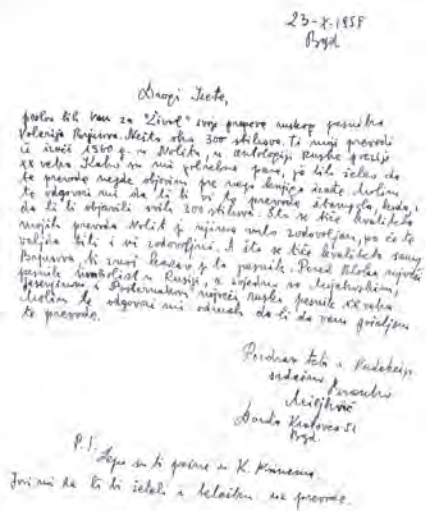 23-X-1958
Bgd.
Dragi Izete,
poslao bih vam za "Život" svoje prepeve ruskog pesnika
Valerija Brjusova. Nešto oko 300 stihova. Ti moji prevodi
će izaći 1960 g. u Nolitu, u antologiji Ruske poezije
XX veka. Kako su mi potrebne pare, ja bih želeo da
te prevode negde objavim pre nego knjiga izađe. Molim
te odgovori mi da li bi vi te prevode štampali, kada, i
da li bi objavili svih 300 stihova. Što se tiče kvaliteta
mojih prevoda Nolit je njima vrlo zadovoljan, pa će te
valjda biti i vi zadovoljni. A što se tiče kvaliteta samog
Brjusova, ti znaš kakav je to pesnik. Pored Bloka najveći
pesnik simbolist u Rusiji, a zajedno sa Majakovskim,
Jesenjinom i Pasternakom najveći ruski pesnik XX veka.
Molim te odgovori mi odmah da li da vam pošaljem
te prevode.
Pozdrav tebi i
srdačno Branko
Miljković
Bgd.
P.S.
Lepo su ti pesme u K.
Javi mi da li bi želeli i belešku uz prevode.